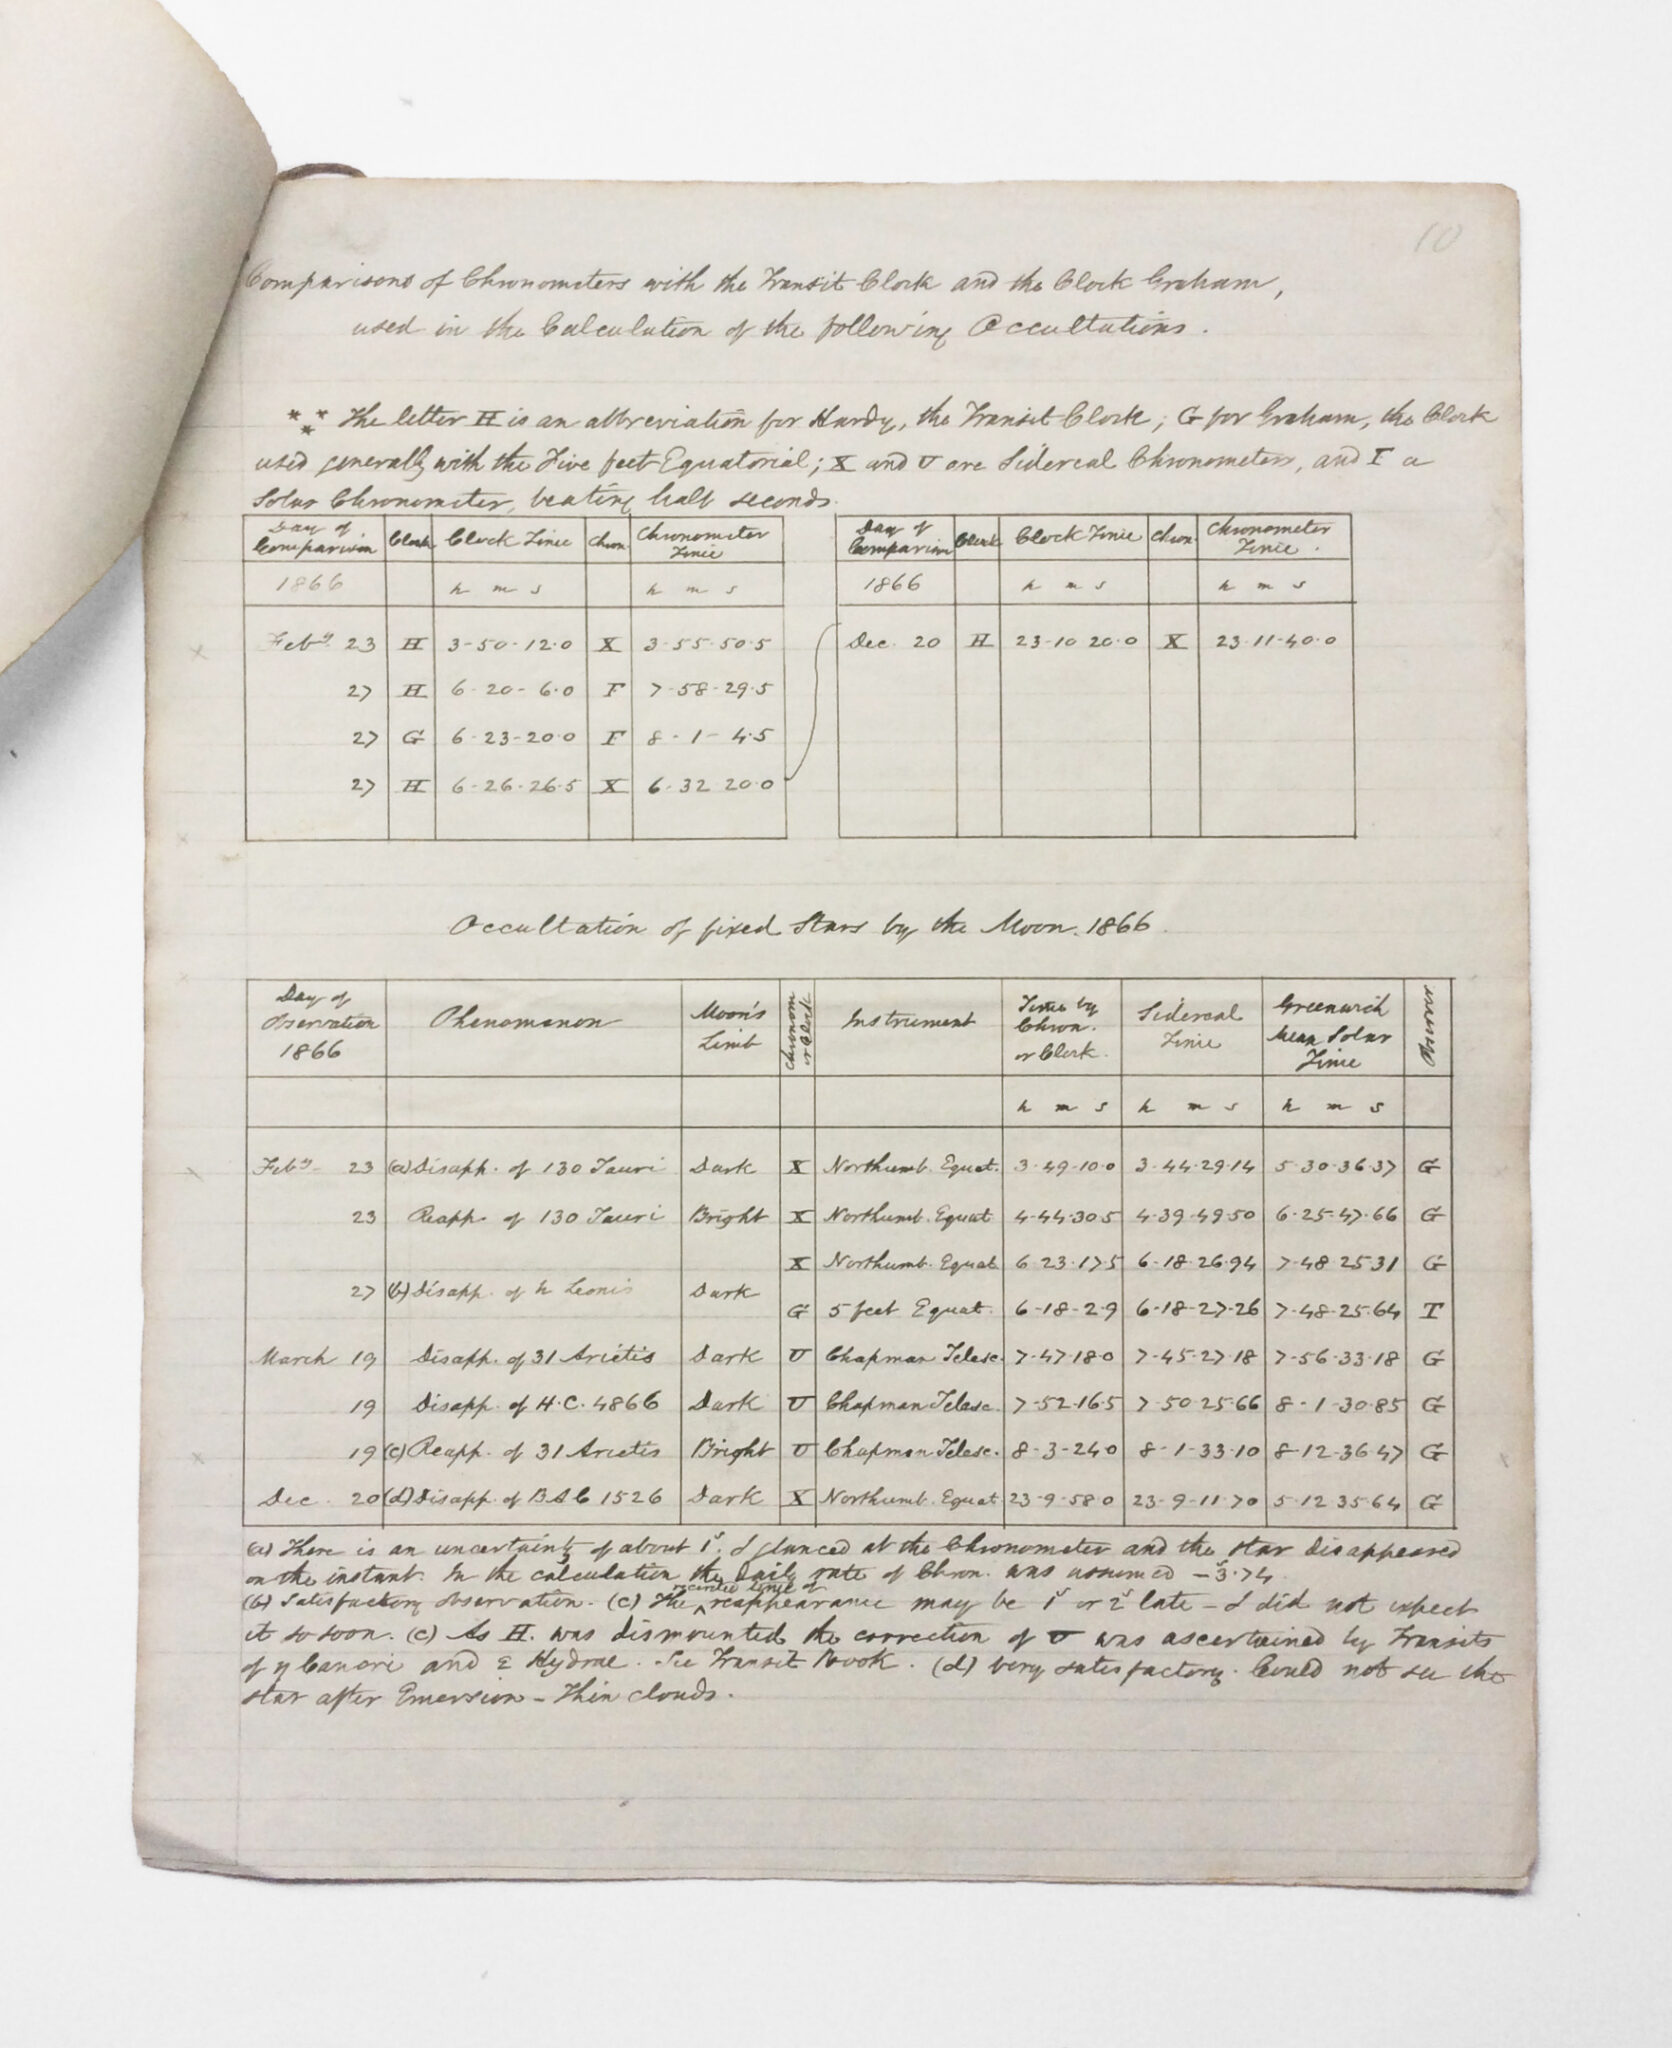 10
Comparisons of Chronometers with the Transit Clock and the Clock Graham,
used in the Calculation of the following Occultations.
*** The letter H is an abbreviation for Hardy, the Transit Clock; G for Graham, the Clock
used generally with the Five feet Equatorial; X and U are Sidereal Chronometers, and F a
Solar Chronometer, beating half seconds.
Day of Comparison Clock Clock Time Chron. Chronometer Time
1866 h m s h m s
Feby. 23 H 3-50-12.0 X 3-55-50.5
27 H 6-20-6.0 F 7-58-29.5
27 G 6-23-20.0 F 8-1-4.5
27 H 6-26-26.5 X 6-32-20.0
Day of Comparison Clock Clock Time Chron. Chronometer Time.
1866 h m s h m s
Dec. 20 H 23-10-20.0 X 23-11-40.0
Occultation of fixed Stars by the Moon. 1866.
Day of Observation 1866 Phenomenon Moon's Limb Chronom. or Clock Instrument Time by Chron. or Clock. Sidereal Time Greenwich Mean Solar Time Observer
h m s h m s h m s
Feby. 23 (a) Disapp. of 130 Tauri Dark X Northumb. Equat. 3-49-10.0 3-44-29.14 5-30-36.37 G
23 Reapp. of 130 Tauri Bright X Northumb. Equat. 4-44-30.5 4-39-49.50 6-25-47.66 G
X Northumb. Equat. 6-23-17.5 6-18-26.94 7-48-25.31 G
27 (b) Disapp. of h Leonis Dark
G 5 feet Equat. 6-18-2.9 6-18-27.26 7-48-25.64 T
March 19 Disapp. of 31 Arietis Dark U Chapman Telesc. 7-47-18.0 7-45-27.18 7-56-33.18 G
19 Disapp. of H.C. 4866 Dark U Chapman Telesc. 7-52-16.5 7-50-25.66 8-1-30.85 G
19 (c) Reapp. of 31 Arietis Bright U Chapman Telesc. 8-3-24.0 8-1-33.10 8-12-36.47 G
Dec. 20 (d) Disapp. of B.A.C 1526 Dark X Northumb. Equat 23-9-58.0 23-9-11.70 5-12-35.64 G
(a) There is an uncertainty of about 1s. I glanced at the Chronometer and the star disappeared
on the instant. In the calculation the Daily rate of Chron. was assumed -3s.74
(b) Satisfactory observation. (c) The recorded time of reappearance may be 1s or 2s late - I did not expect
it so soon. (c) As H. was dismounted the correction of U was ascertained by Transits
of η Cancri and ε Hydrae. See Transit Book. (d) Very satisfactory. Could not see the
star after Emersion - Thin clouds.